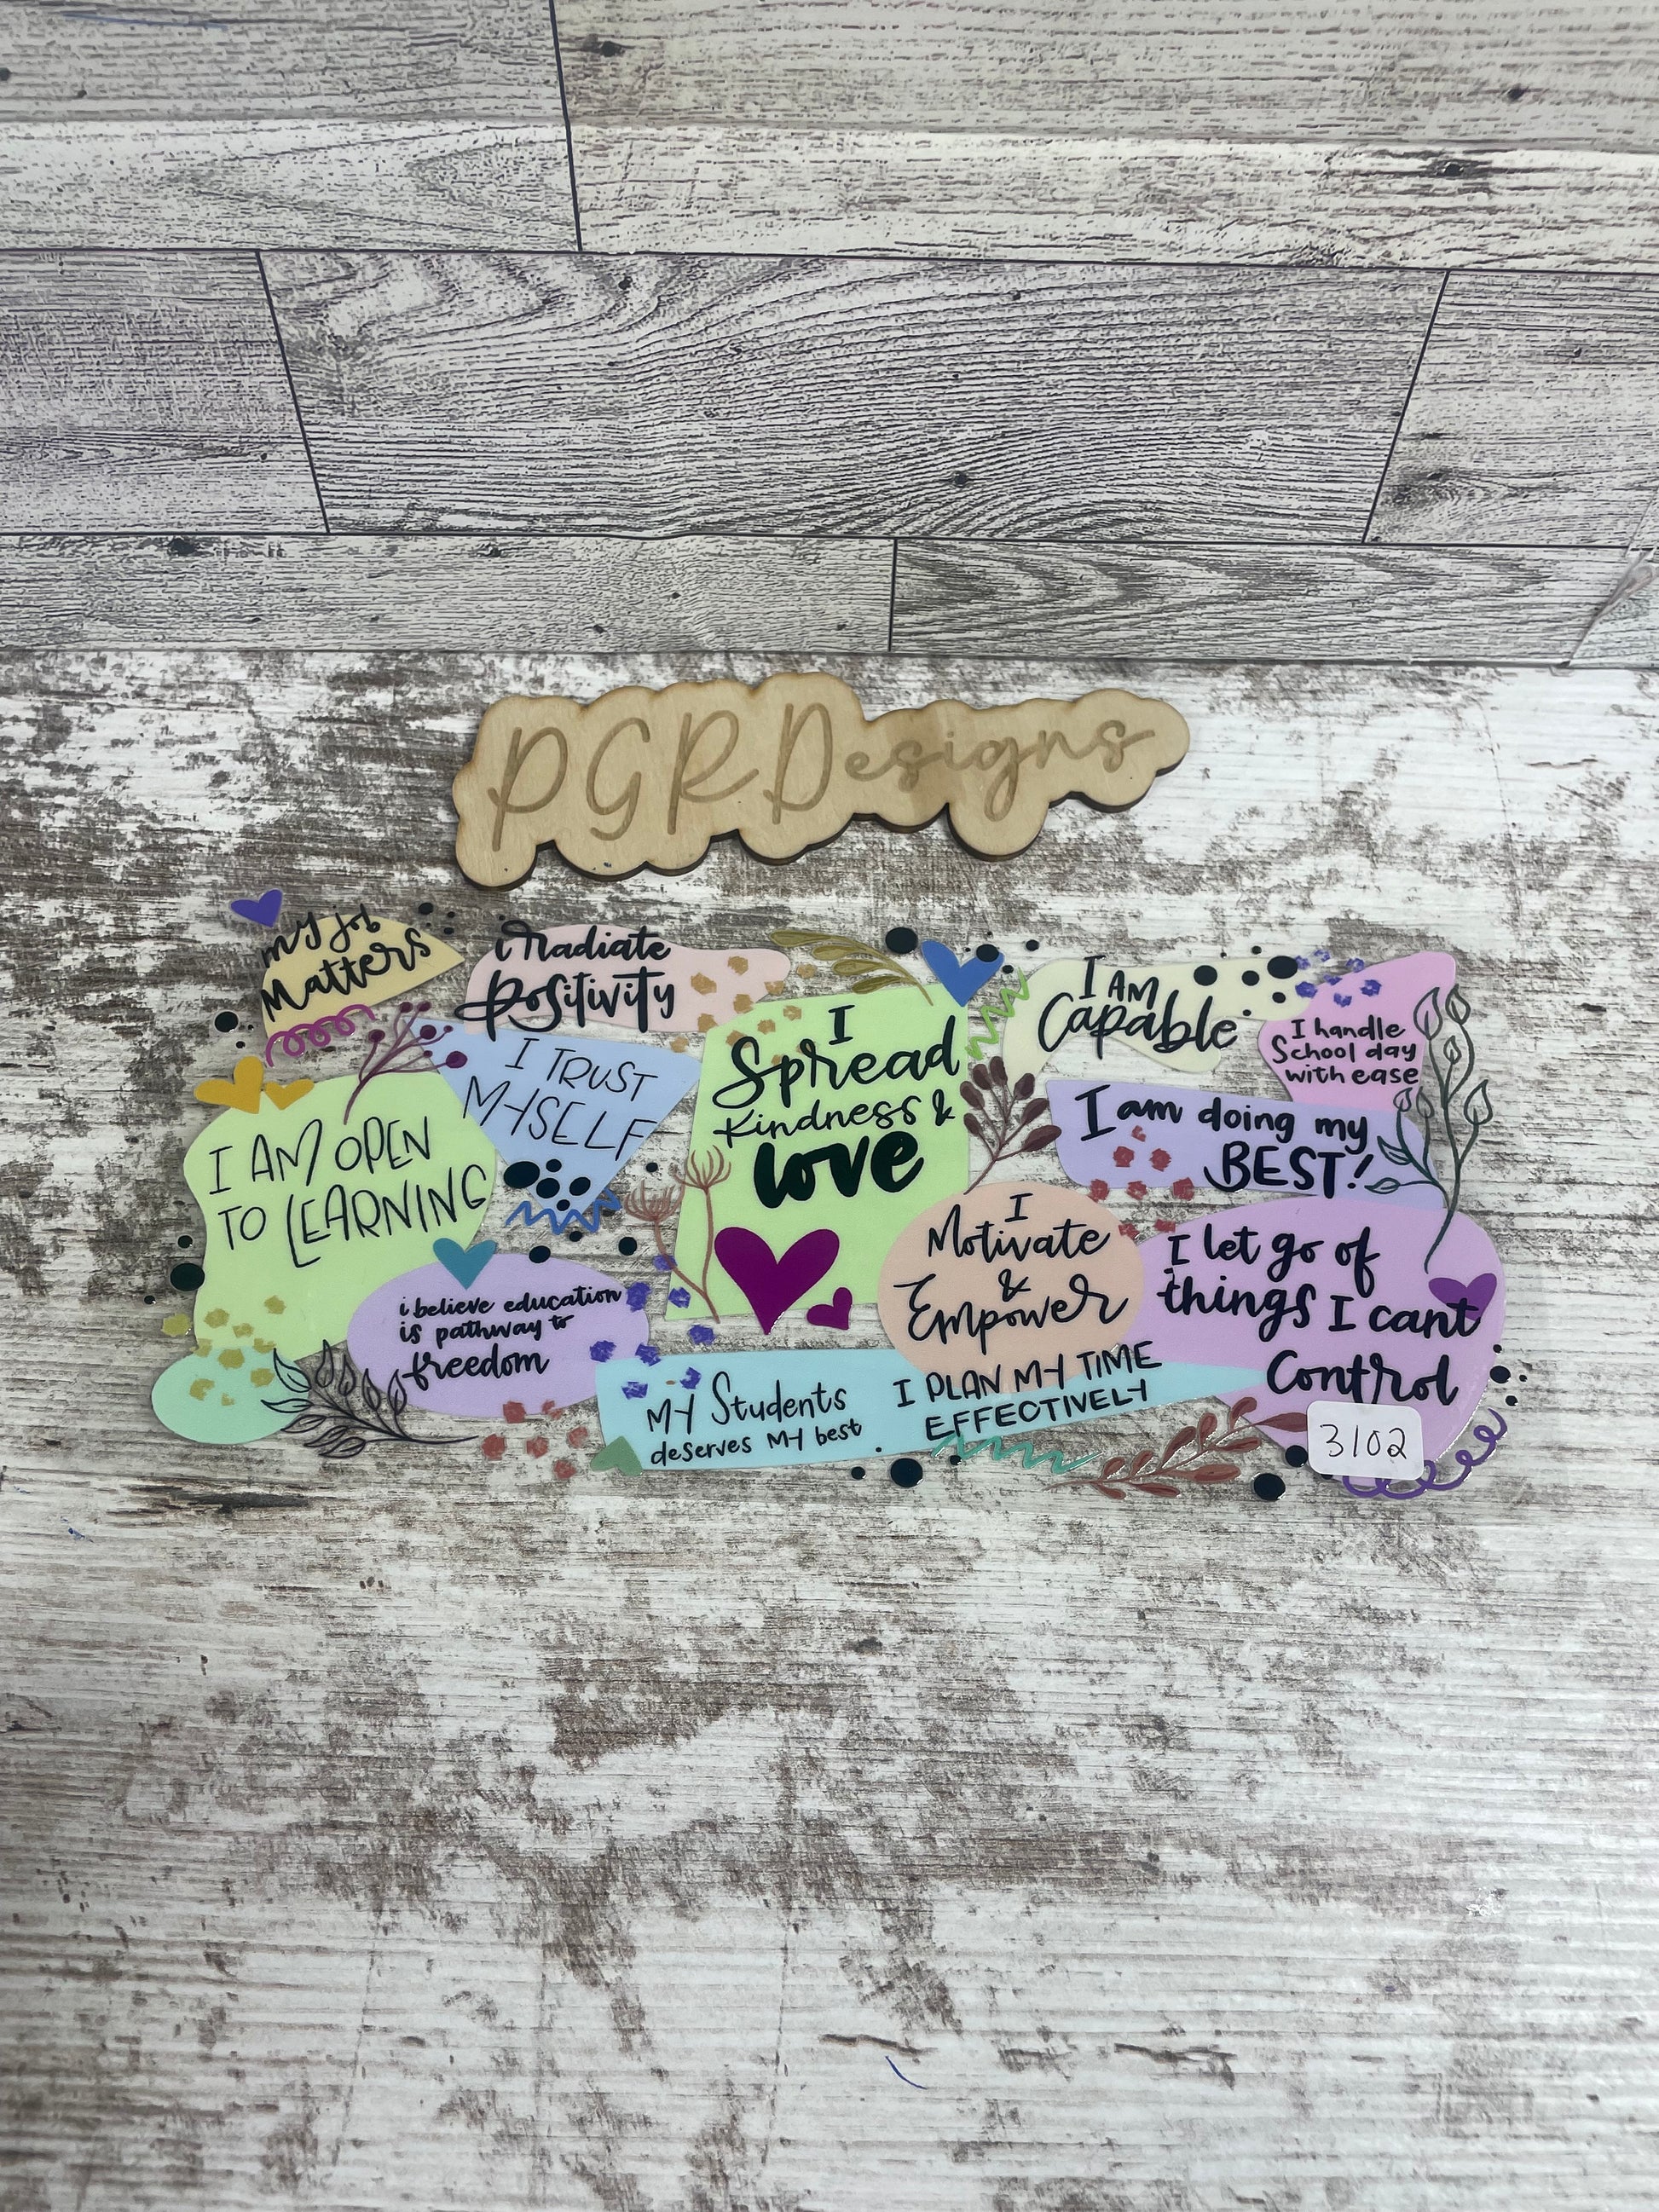 PGRDesigns
my job
Matters
i radiate
positivity
I TRUST
MYSELF
I AM OPEN
TO LEARNING
i believe education
is pathway to
freedom
I
Spread
Kindness &
love
I AM
Capable
I handle
School day
with ease
I am doing my
BEST!
I
Motivate
&
Empower
I let go of
things I cant
Control
MY Students
deserves MY best.
I PLAN MY TIME
EFFECTIVELY
3102